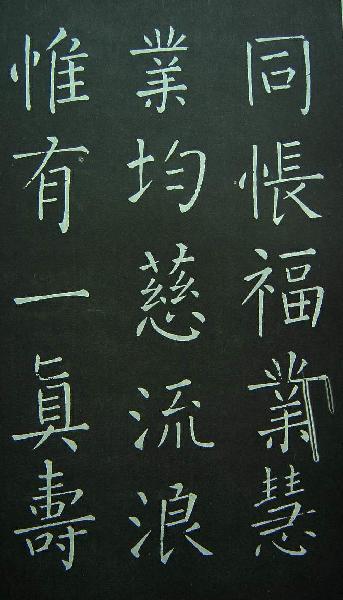 同悵福業慧
業均慈流浪
惟有一真壽